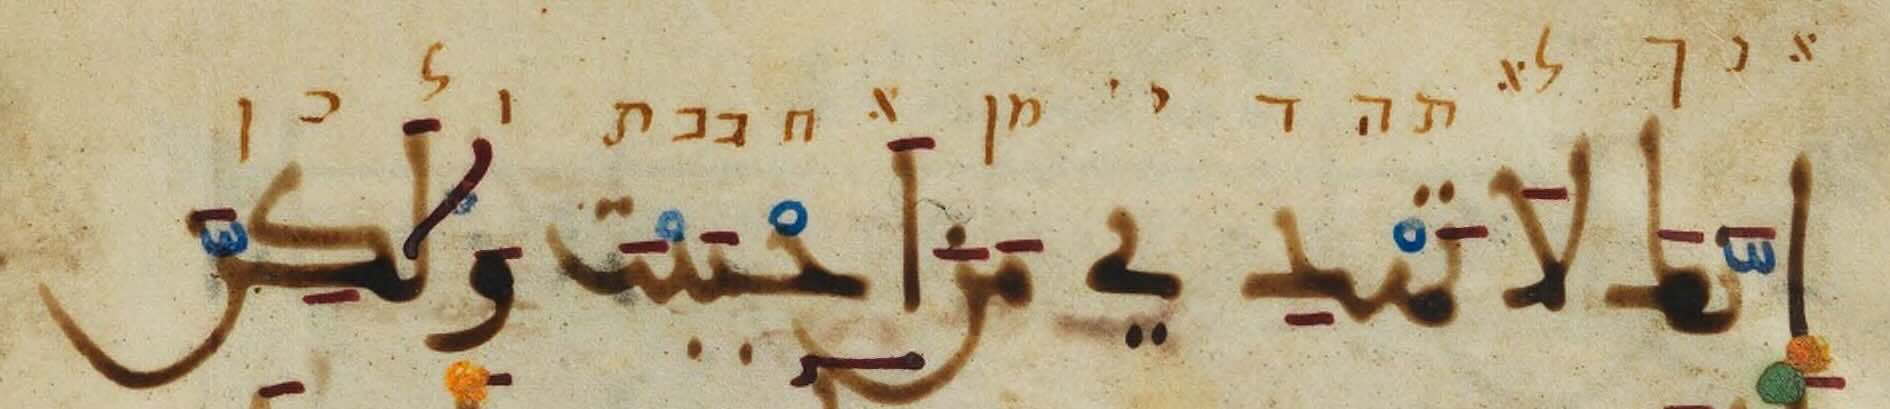 אנך לא תהדיי מן אחבבת ולכן
إِنَّكَ لَا تَهْدِي مَنْ أَحْبَبْتَ وَلَكِنَّ